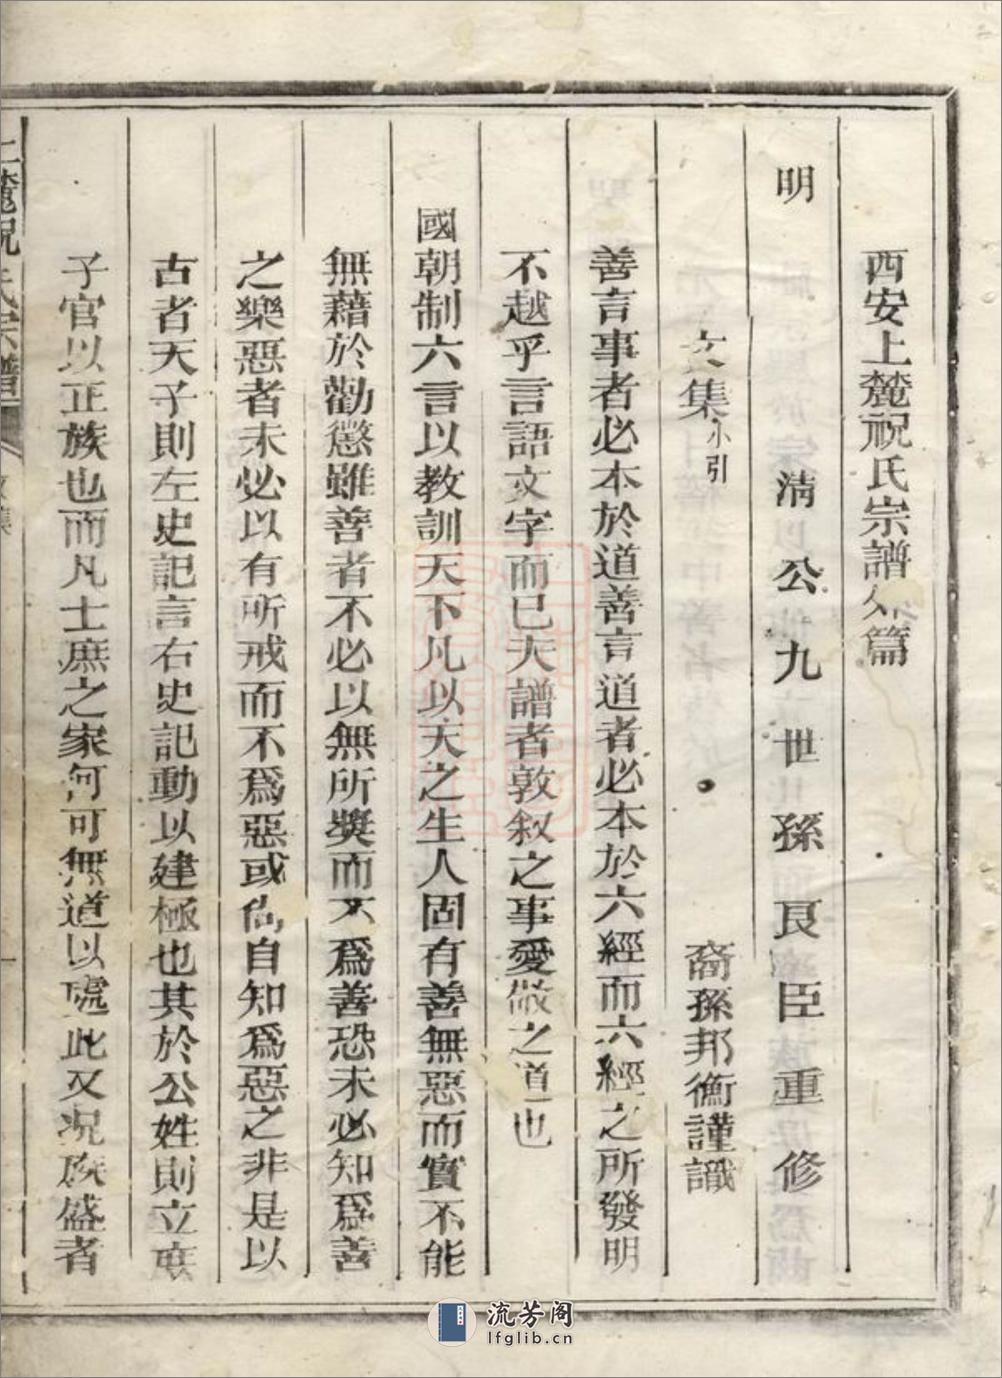 西安上麓祝氏宗譜外篇
明清公九世孫良臣重修
文集小引
裔孫邦衡謹識
善言事者必本於道善言道者必本於六經而六經之所發明
不越乎言語文字而已夫譜者敦叙之事愛敬之道也
國朝制六言以教訓天下凡以天之生人固有善無惡而實不能
無藉於勸懲雖善者不必以無所獎而不爲善恐未必知爲善
之樂惡者未必以有所戒而不爲惡或僞自知爲惡之非是以
古者天子則左史記言右史記動以建極也其於公姓則立庶
子官以正族也而凡士庶之家何可無道以處此又况族盛者
上麓祝氏宗譜
文集
一
流芳阁
lfglib.cn